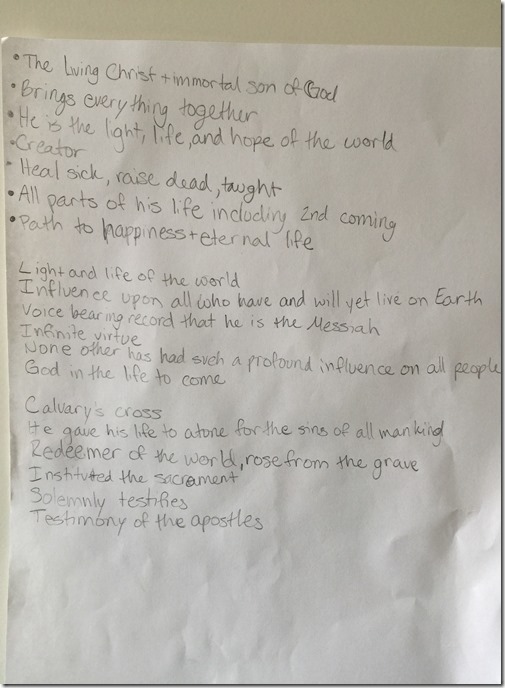 • The Living Christ + immortal son of God
• Brings everything together
• He is the light, life, and hope of the world
• Creator
• Heal sick, raise dead, taught
• All parts of his life including 2nd coming
• Path to happiness + eternal life
Light and life of the world
Influence upon all who have and will yet live on Earth
Voice bearing record that he is the Messiah
Infinite virtue
None other has had such a profound influence on all people
God in the life to come
Calvary's cross
He gave his life to atone for the sins of all mankind
Redeemer of the world, rose from the grave
Instituted the sacrament
Solemnly testifies
Testimony of the apostles